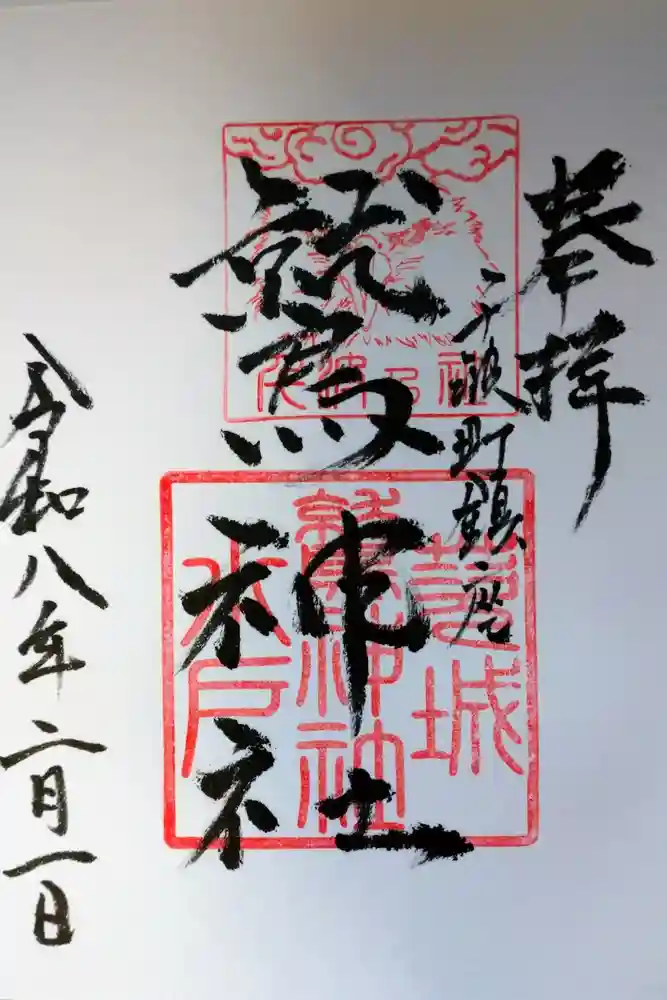 奉拝
町鎮座
鷲神社
茨城
鷲神社
水戸
令和八年二月一日